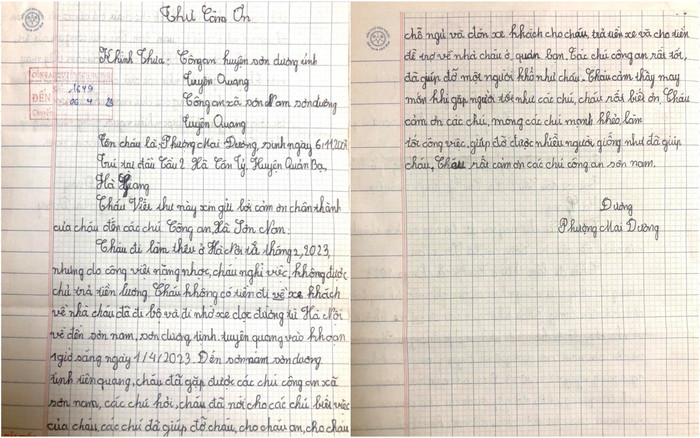 Thư Cảm Ơn
Khính Thưa: Công an huyện sơn dương tỉnh
Tuyên Quang
Công an xã sơn Nam sơn dương
Tuyên Quang
Tên cháu là Phượng Mai Dương, sinh ngày 6/11/
Trú tại đầu Cầu 2. Hà Cán Tỷ, Huyện Quản Bạ,
Hà Giang
Cháu Viết thư này xin gửi lời cảm ơn chân thành
của cháu đến các chú Công an, Hà Sơn Nam.
Cháu đi làm thêu ở Hà Nội từ tháng 2, 2023,
nhưng do công việc nặng nhọc, cháu nghỉ việc, không được
chủ trả tiền lương. Cháu không có tiền đi về xe khách
về nhà cháu đã đi bộ và đi nhờ xe dọc đường từ Hà Nội
về đến sơn nam, sơn dương, tỉnh. tuyên quang vào khoản
1 giờ sáng ngày 1/4/2023. Đến sơn nam sơn dương
tỉnh tiên quang, cháu đã gặp được các chú công an xã
sơn nam, các chú hỏi, cháu đã nói cho các chú biết việc
của cháu, các chú đã giúp đỡ cháu, cho cháu ăn, cho cháu
ĐẾN
1649
06 4 23
chỗ ngủ và đón xe khách cho cháu, trả tiền xe và cho tiền
để trở về nhà cháu ở quản bạ. Các chú công an rất tốt,
đã giúp đỡ một người khó như cháu. Cháu cảm thấy may
mắn khi gặp người tốt như các chú, cháu rất biết ơn, Cháu
cảm ơn các chú, mong các chú mạnh khỏe làm
tốt công việc, giúp đỡ được nhiều người giống như đã giúp
cháu, Cháu rất cảm ơn các chú công an sơn nam.
Dương
Phượng Mai Dương